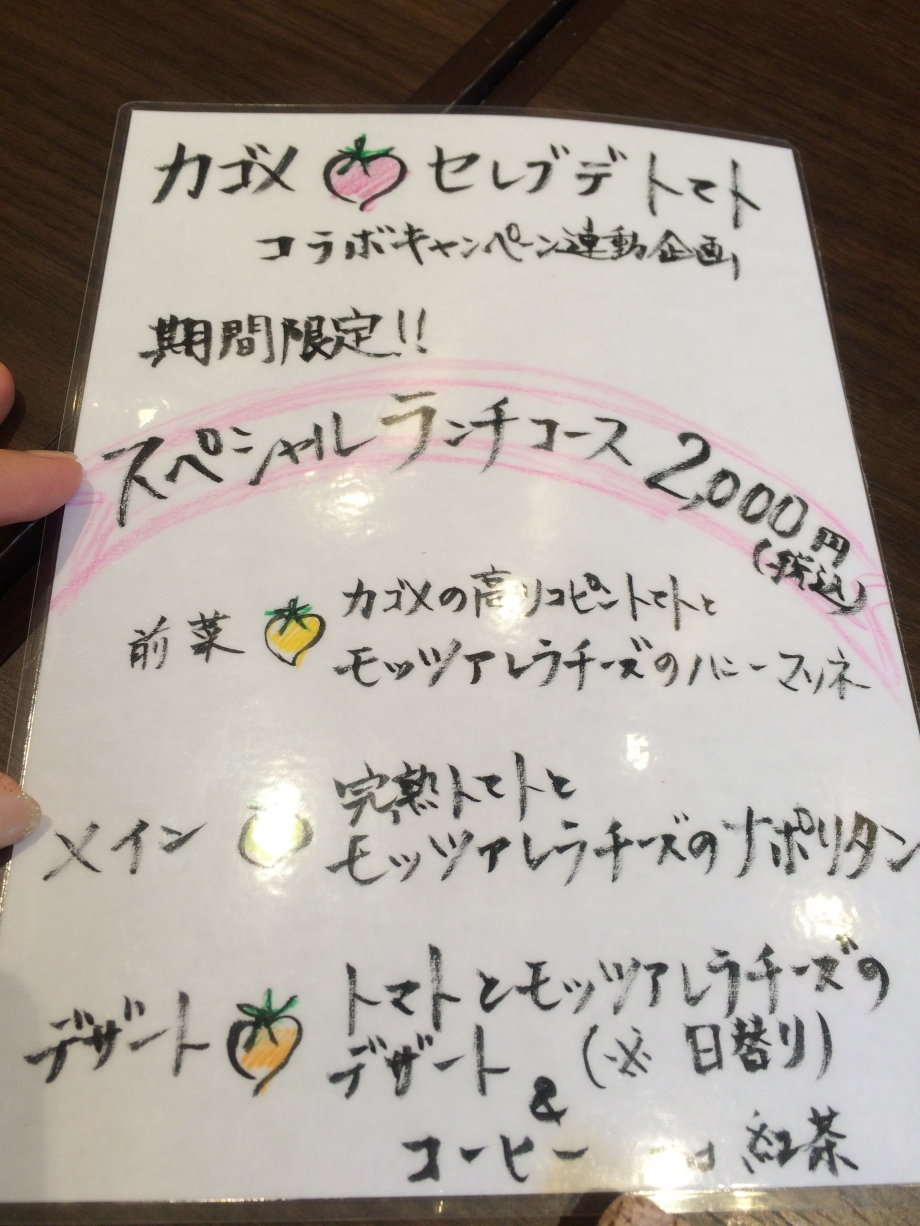 カゴメ セレブデトマト
コラボキャンペーン連動企画
期間限定!!
スペシャルランチコース 2,000円
(税込)
前菜 カゴメの高リコピントマトと
モッツァレラチーズのハニーマリネ
メイン 完熟トマトと
モッツァレラチーズのナポリタン
デザート トマトとモッツァレラチーズの
デザート (※日替り)
&
コーヒー 紅茶